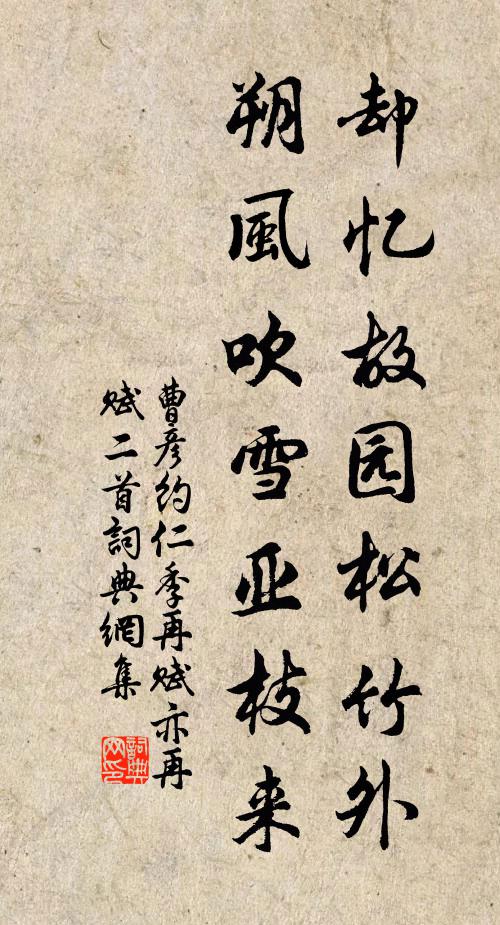 却忆故园松竹外
朔風吹雪亚枝来
曹彦约仁季再赋亦再
赋二首詞典網集
詞典
网印